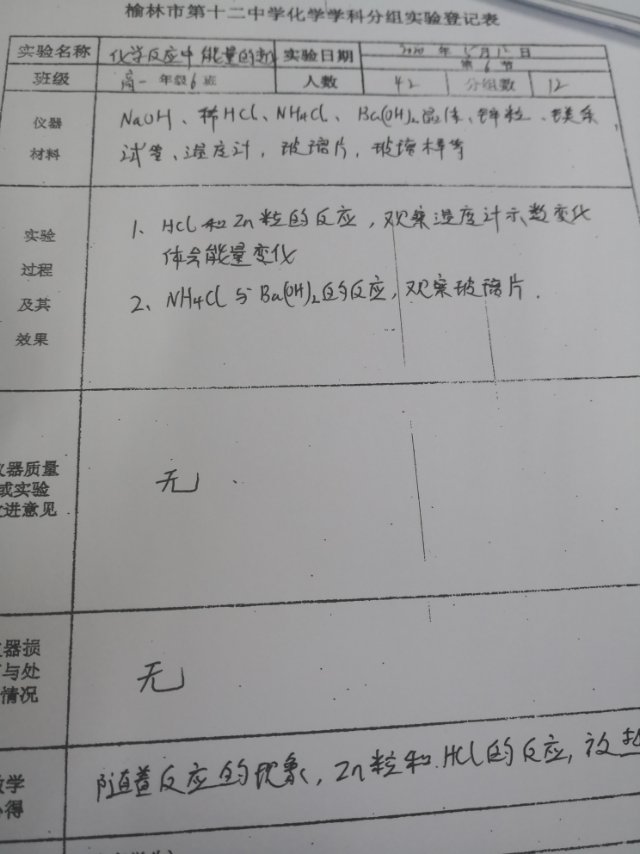 榆林市第十二中学化学学科分组实验登记表
实验名称 化学反应中能量的 实验日期 年 月 日
第6节
班级 高一 年级6班 人数 42 分组数 12
仪器 NaOH、稀HCl、NH4Cl、Ba(OH)2晶体、锌粒、镁条
材料 试管、温度计，玻璃片，玻璃棒等
实验 1、HCl和Zn粒的反应，观察温度计示数变化
过程 体会能量变化
及其 2、NH4Cl与Ba(OH)2的反应，观察玻璃片.
效果
仪器质量
或实验 无
进意见
器损
与处 无
情况
学 随着反应的现象，Zn粒和HCl的反应，放热
得